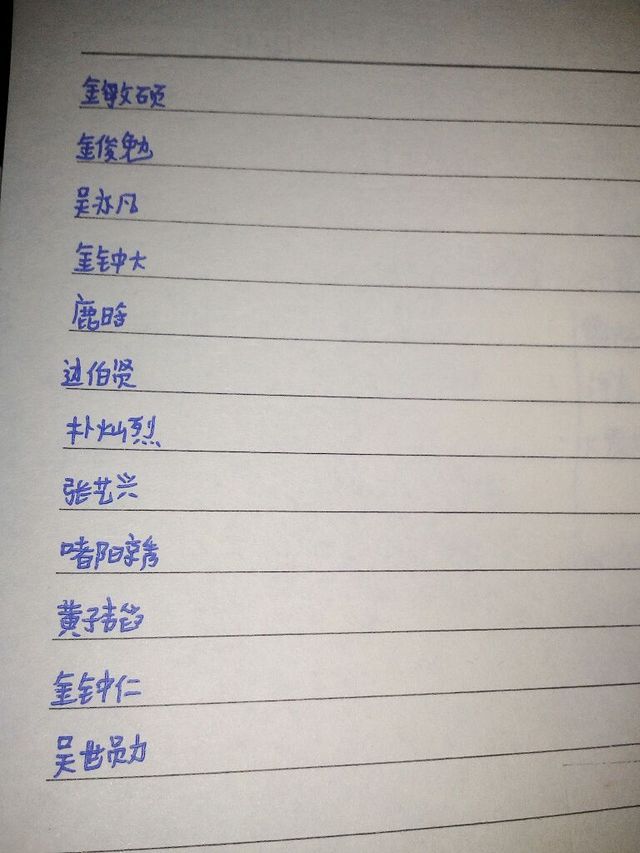 金敏硕
金俊勉
吴亦凡
金钟大
鹿晗
边伯贤
朴灿烈
张艺兴
黄子韬
金钟仁
吴世勋